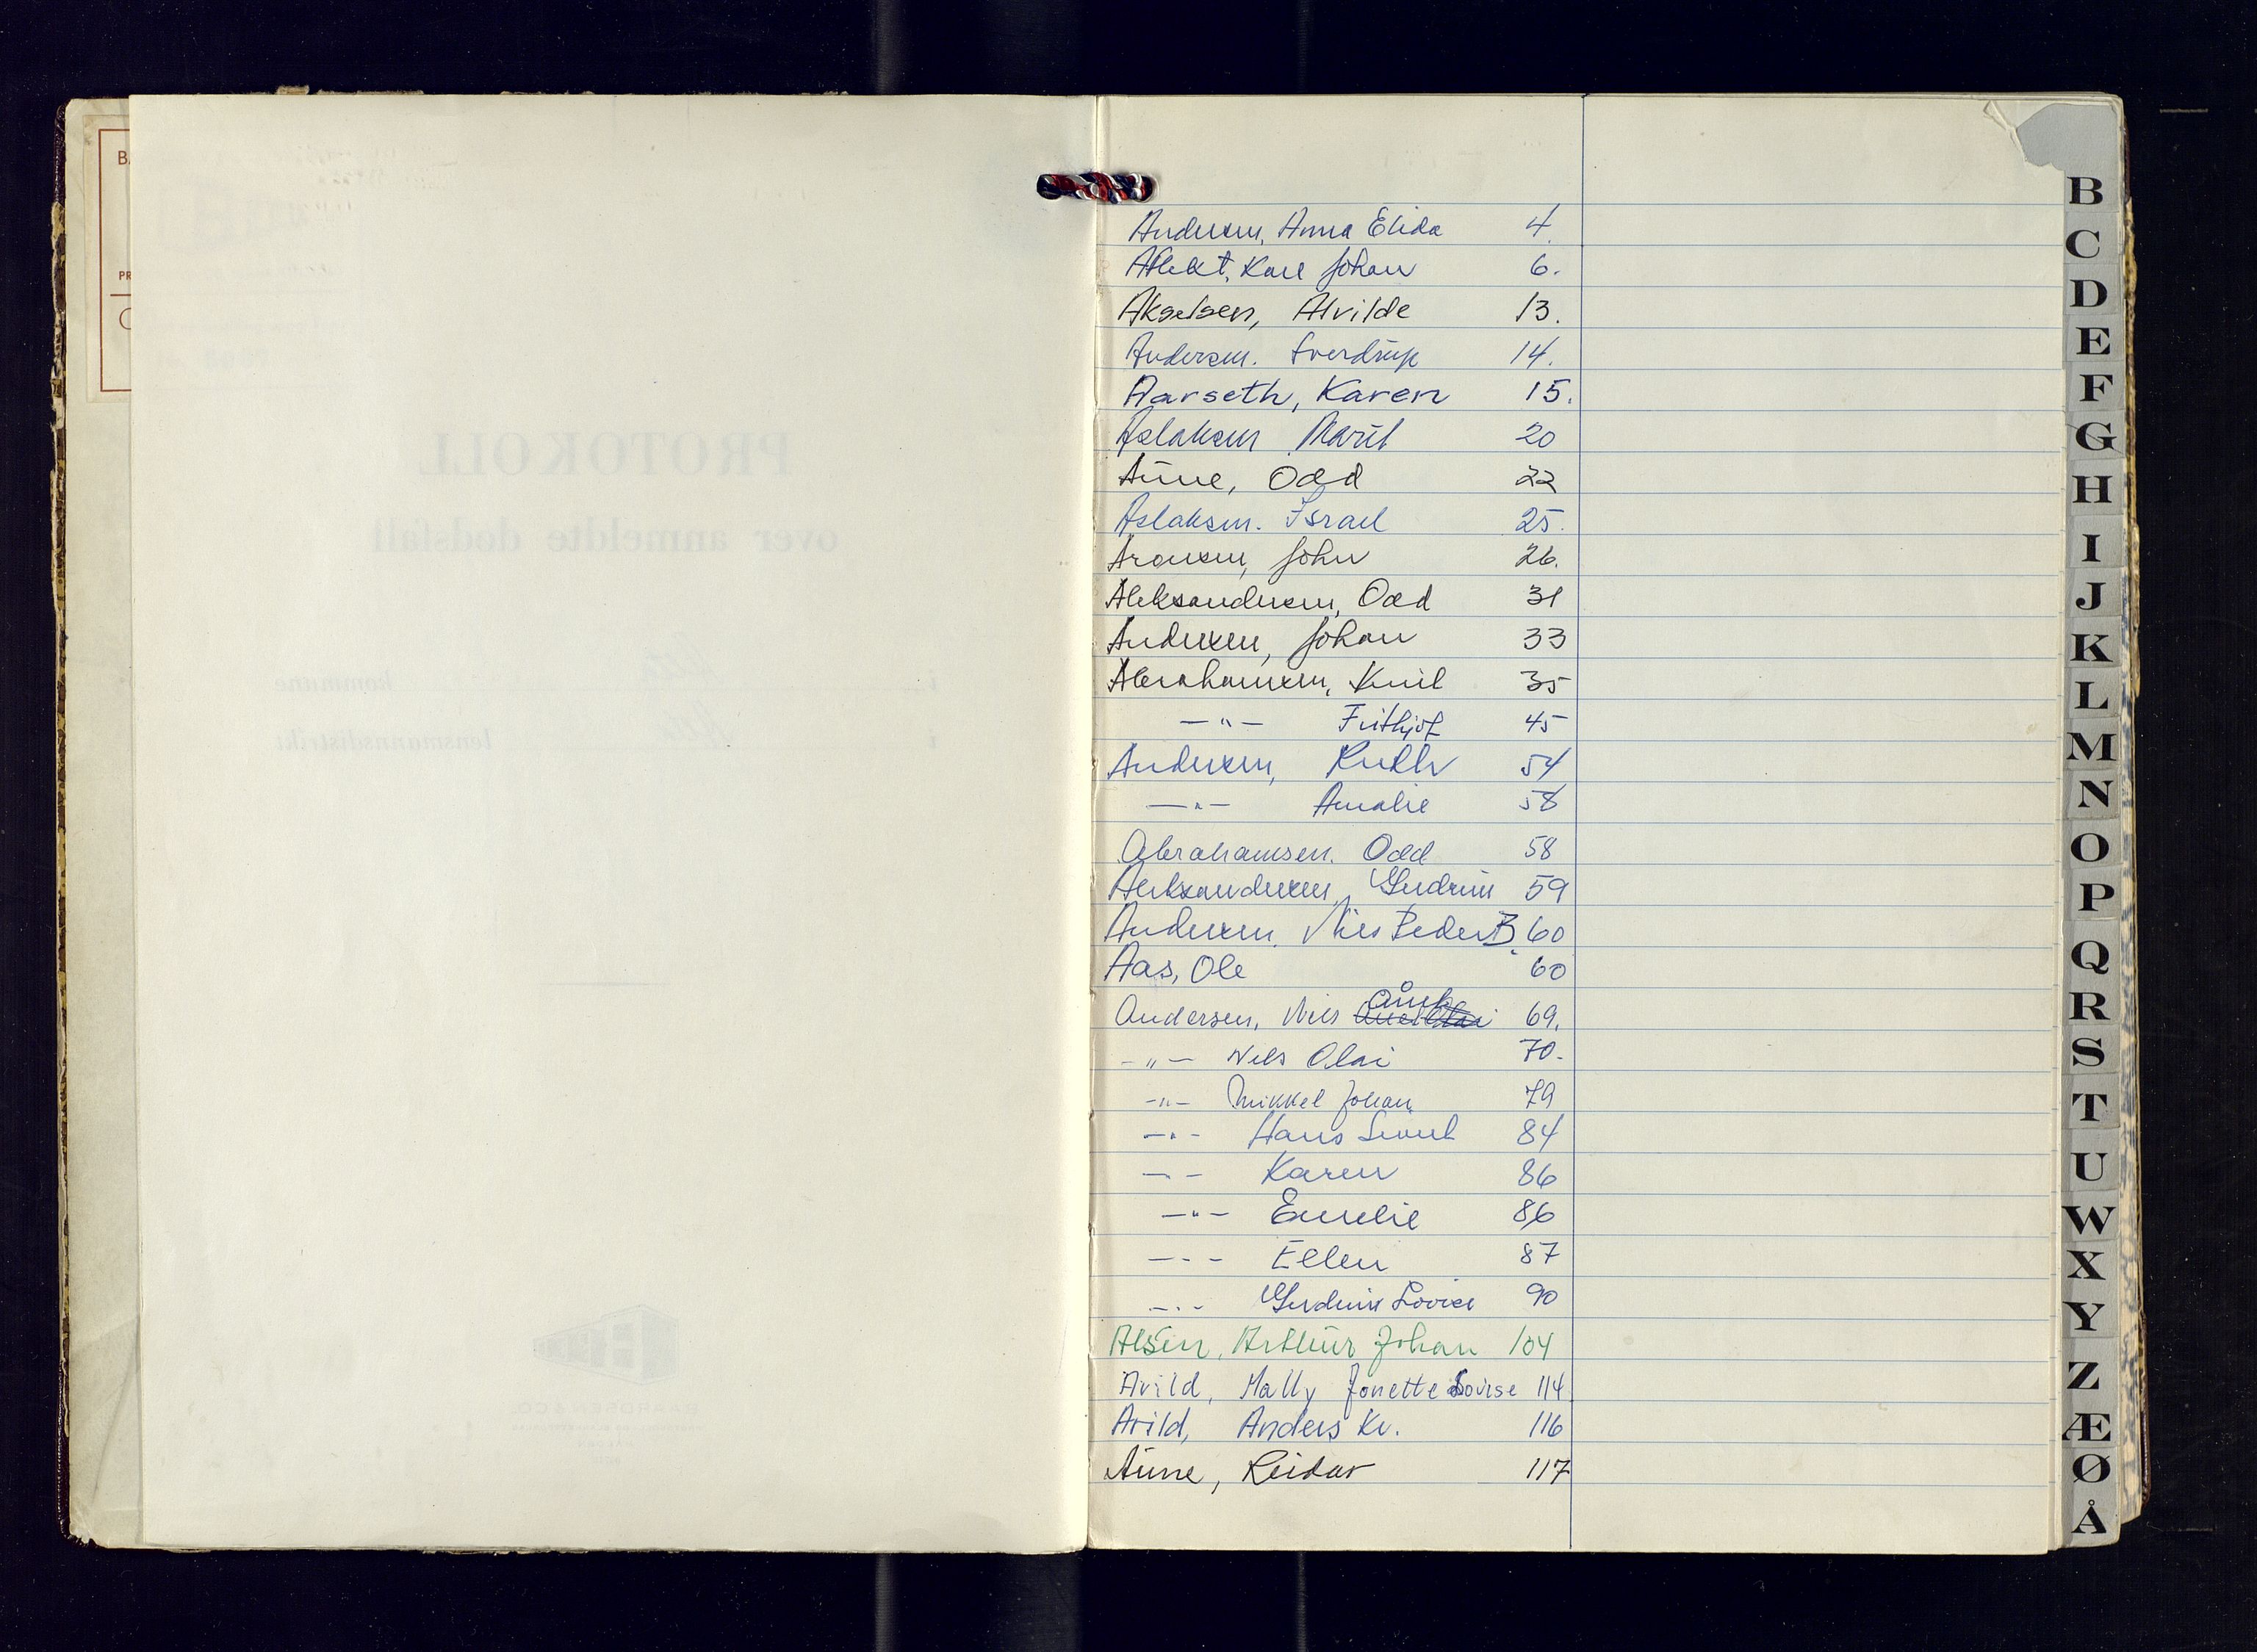 B
PR
PROTOKOLL
over anmeldte dødsfall
i kommune
i lensmannsdistrikt
Andersen, Anna Elida 4.
Karl Johan 6.
Akselsen, Alvilde 13.
Andersen. Sverdrup 14.
Aarseth, Karen 15.
Aslaksen Marit 20
Aune, Odd 22
Aslaksen. Israel 25.
Aronsen, John 26.
Aleksandersen, Odd 31
Andersen, Johan 33
Abrahamsen, Knut 35
—"— Frithjof 45
Andersen, Ruth 54
—"— Amalie 58
Abrahamsen. Odd 58
Aleksandersen, Gudrun 59
Andersen, Nils Peder B. 60
Aas, Ole 60
Andersen, Nils 69.
-"- Nils Olai 70.
-"- Mikkel Johan 79
-"- Hans 84
-"- Karen 86
-"- Emelie 86
-"- Ellen 87
-"- Gudrun Lovise 90
Alsen, Arthur Johan 104
Arild, Mally Jonette Lovise 114
Arild, Anders Kr. 116
Aune, Reidar 117
B
C
D
E
F
G
H
I
J
K
L
M
N
O
P
Q
R
S
T
U
W
X
Y
Z
Æ
Ø
Å